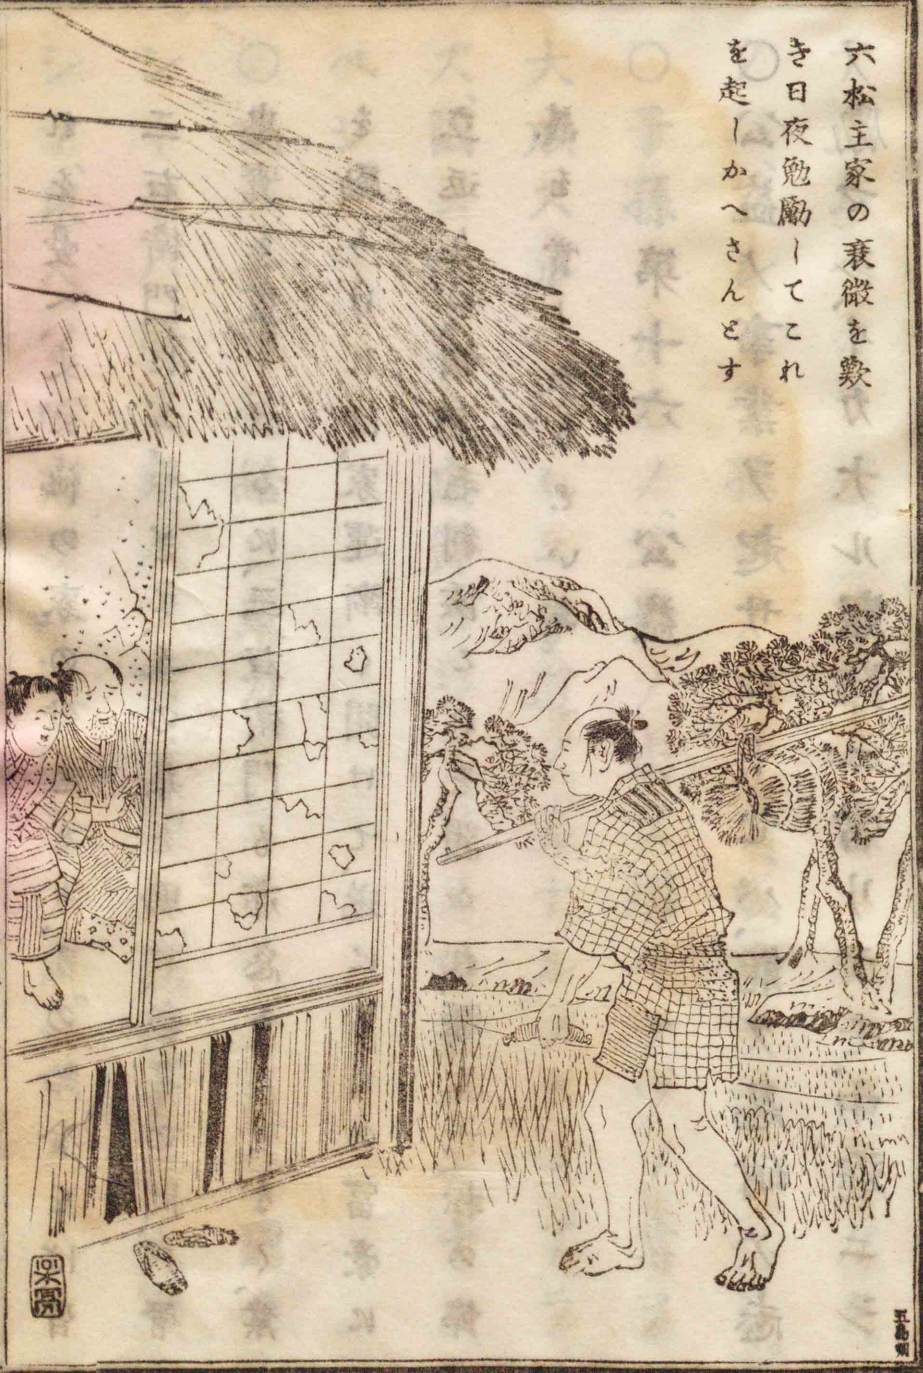 六松主家の衰微を歎
き日夜勉勵してこれ
を起しかへさんとす